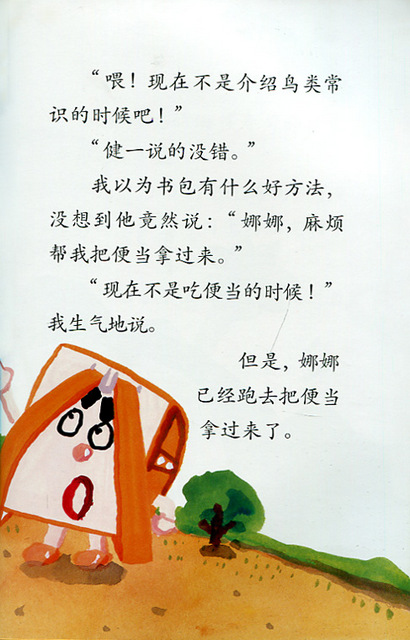 “喂！现在不是介绍鸟类常
识的时候吧！”
“健一说的没错。”
我以为书包有什么好方法，
没想到他竟然说：“娜娜，麻烦
帮我把便当拿过来。”
“现在不是吃便当的时候！”
我生气地说。
但是，娜娜
已经跑去把便当
拿过来了。